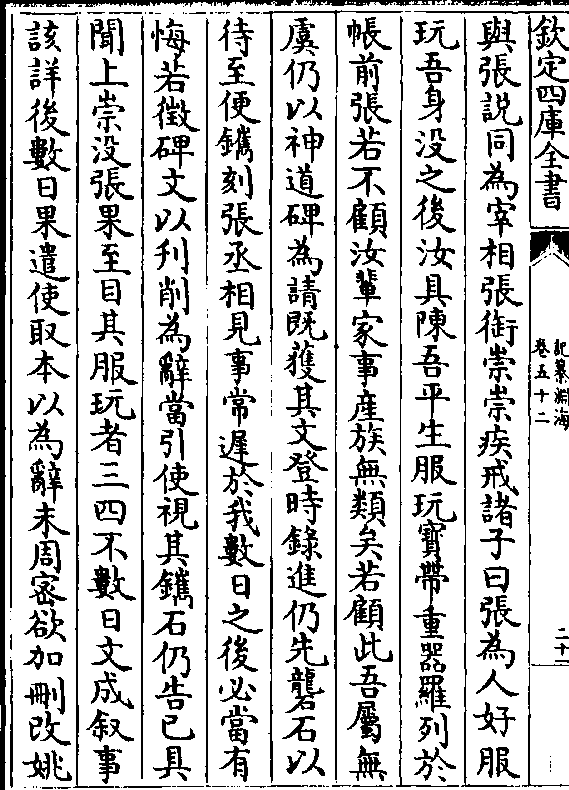 欽定四庫全書
記纂淵海
卷五十二
二十一
與張説同為宰相張銜崇崇疾戒諸子曰張為人好服
玩吾身没之後汝具陳吾平生服玩寳帶重器羅列於
帳前張若不顧汝輩家事産族無類矣若顧此吾屬無
虞仍以神道碑為請既獲其文登時錄進仍先礲石以
待至便鐫刻張丞相見事常遲於我數日之後必當有
悔若徵碑文以刋削為辭當引使視其鐫石仍告已具
聞上崇没張果至目其服玩者三四不數日文成叙事
該詳後數日果遣使取本以為辭未周宻欲加刪改姚